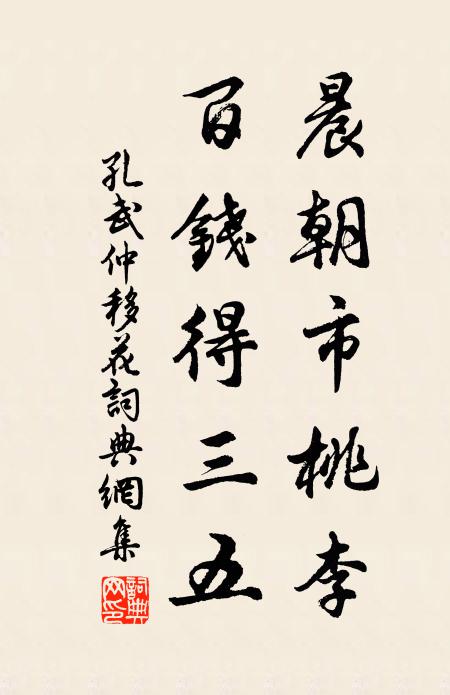 晨朝市桃李
百錢得三五
孔武仲移花詞典網集
詞典
网印